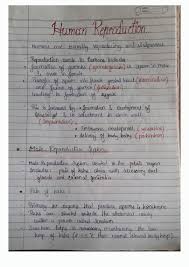 Human Reproduction
Humans are sexually reproducing and viviparous
Reproductive events in humans include
formation of gametes (gametogenesis) → sperm in male & ovum in female
transfer of sperms into female genital tract (insemination)
and fusion of gametes (fertilisation)
leading to formation of zygote
This is followed by → formation & development of
blastocyst & its attachment to uterine wall
(implantation)
embryonic development (gestation)
delivery of baby (parturition)
Male Reproductive System
Male Reproductive System located in the pelvis region
pair of testes along with accessory ducts
glands and external genitalia
Pair of testes
Primary sex organs that produce sperms & testosterone
Testes are situated outside the abdominal cavity
within a pouch called scrotum
Scrotum helps in maintaining the low
temp of testes (2-2.5°C than normal body temp)